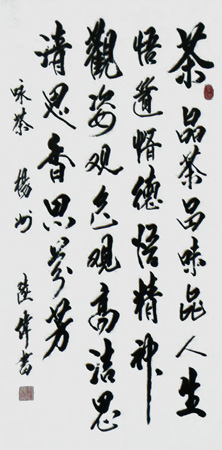 茶品茶品味品人生
悟道悟德悟精神
觀姿观色觀高洁思
清思香思芬芳
咏茶 楊州
陸偉書